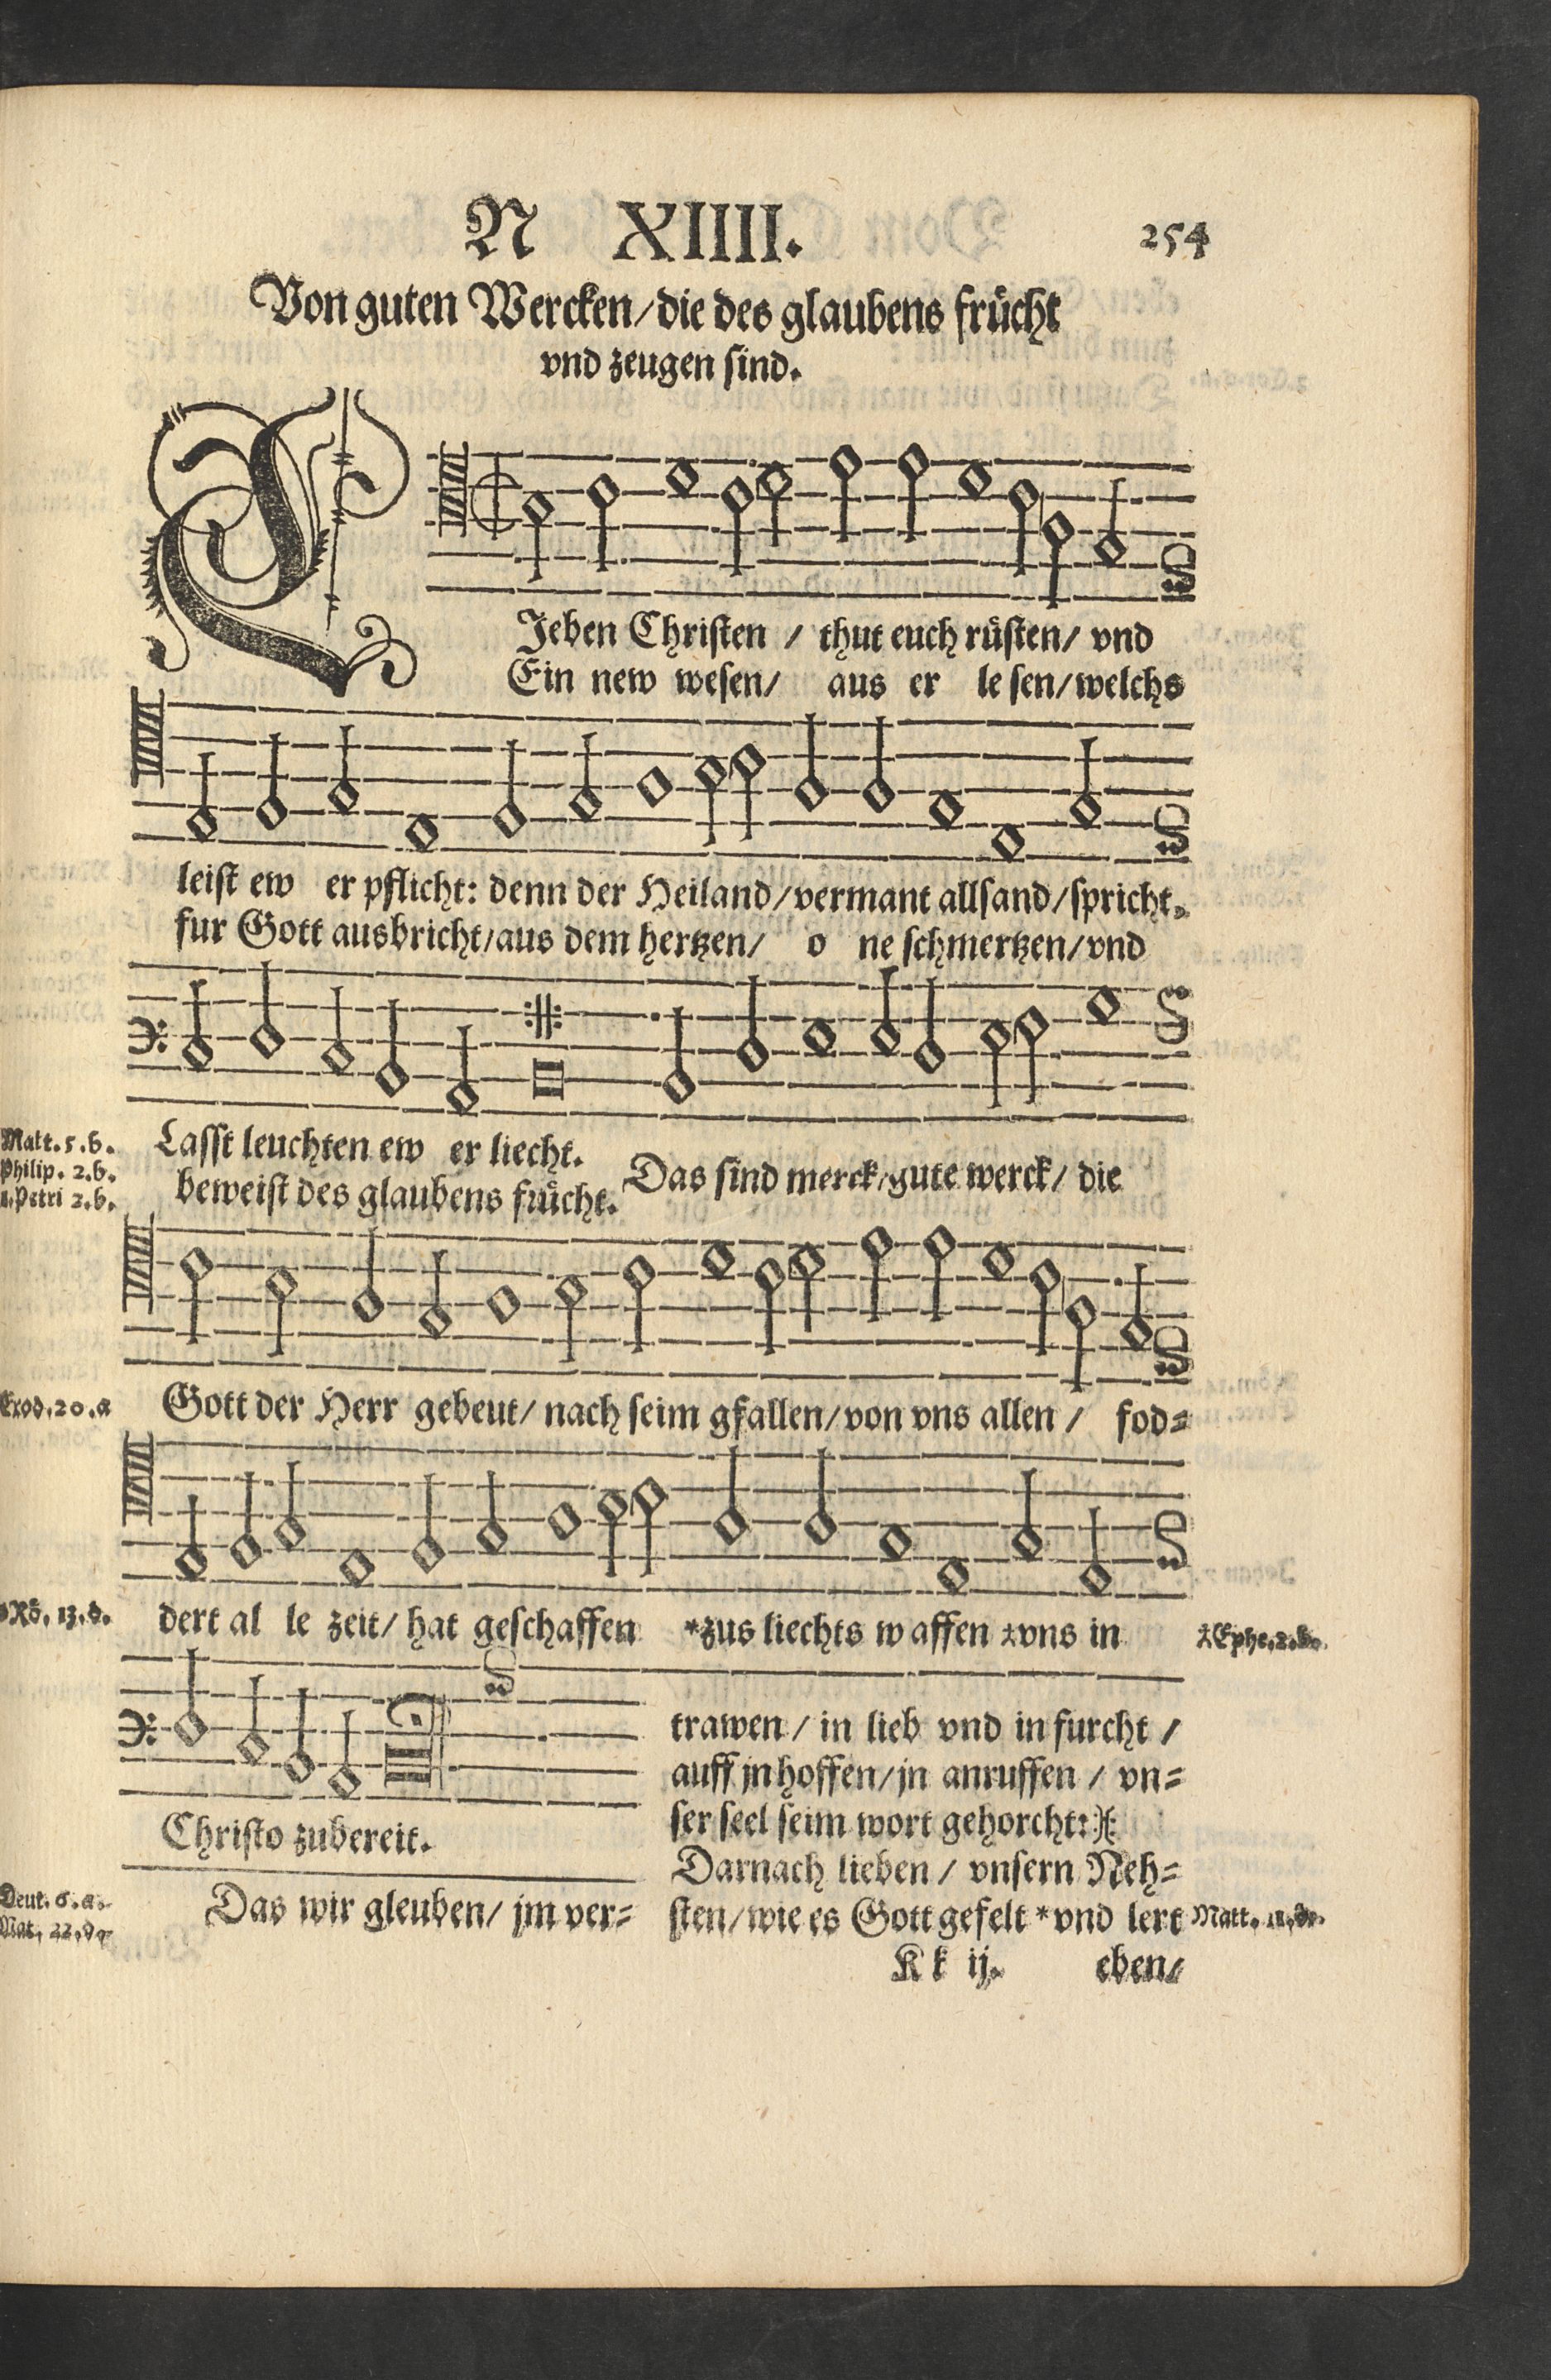 N XIIII.
254
Von guten Wercken/die des glaubens frücht
vnd zeugen sind.
LJeben Christen / thut euch rüsten/ vnd
Ein new wesen/ aus er le sen/welchs
leist ew er pflicht: denn der Heiland/vermant allsand/spricht.
fur Gott ausbricht/aus dem hertzen/ o ne schmertzen/vnd
Matt.5.b.
Philip. 2.b.
1.Petri 2.b.
Lasst leuchten ew er liecht.
beweist des glaubens frücht.
Das sind merck/gute werck/ die
Exod.20.a
Gott der Herr gebeut/ nach seim gfallen/von vns allen / fod=
*Rö. 13.d.
dert al le zeit/ hat geschaffen *zus liechts w affen ⁑vns in
Ephe.2.b.
Christo zubereit.
Deut. 6.a.
Mat. 22.d.
Das wir gleuben/ jm ver=
trawen/ in lieb vnd in furcht /
auff jn hoffen/jn anruffen / vn=
ser seel seim wort gehorcht:
Darnach lieben / vnsern Neh=
sten/wie es Gott gefelt *vnd lert
Matt.
Kk ij. eben/